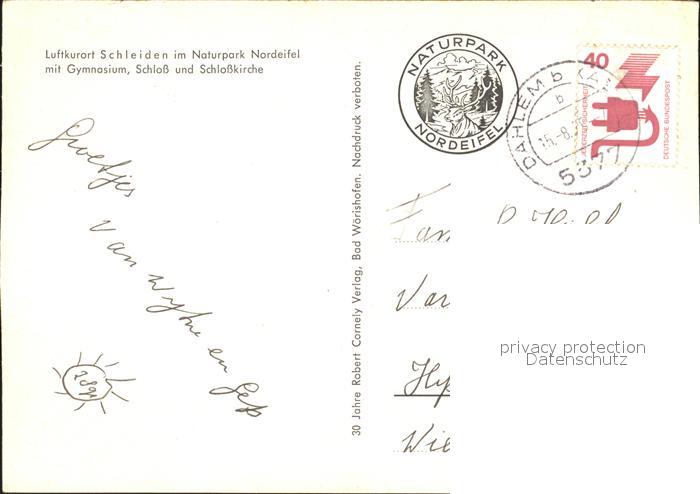 Luftkurort Schleiden im Naturpark Nordeifel
mit Gymnasium, Schloß und Schloßkirche
Groetjes
Van Wytze en Gep
28gr
30 Jahre Robert Cornely Verlag, Bad Wörishofen. Nachdruck verboten.
NATURPARK
NORDEIFEL
DAHLEM b KA
b
16.-8.
5377
40
JEDERZEIT SICHERHEIT
DEUTSCHE BUNDESPOST
Fam
Var
Hy
Wie
privacy protection
Datenschutz